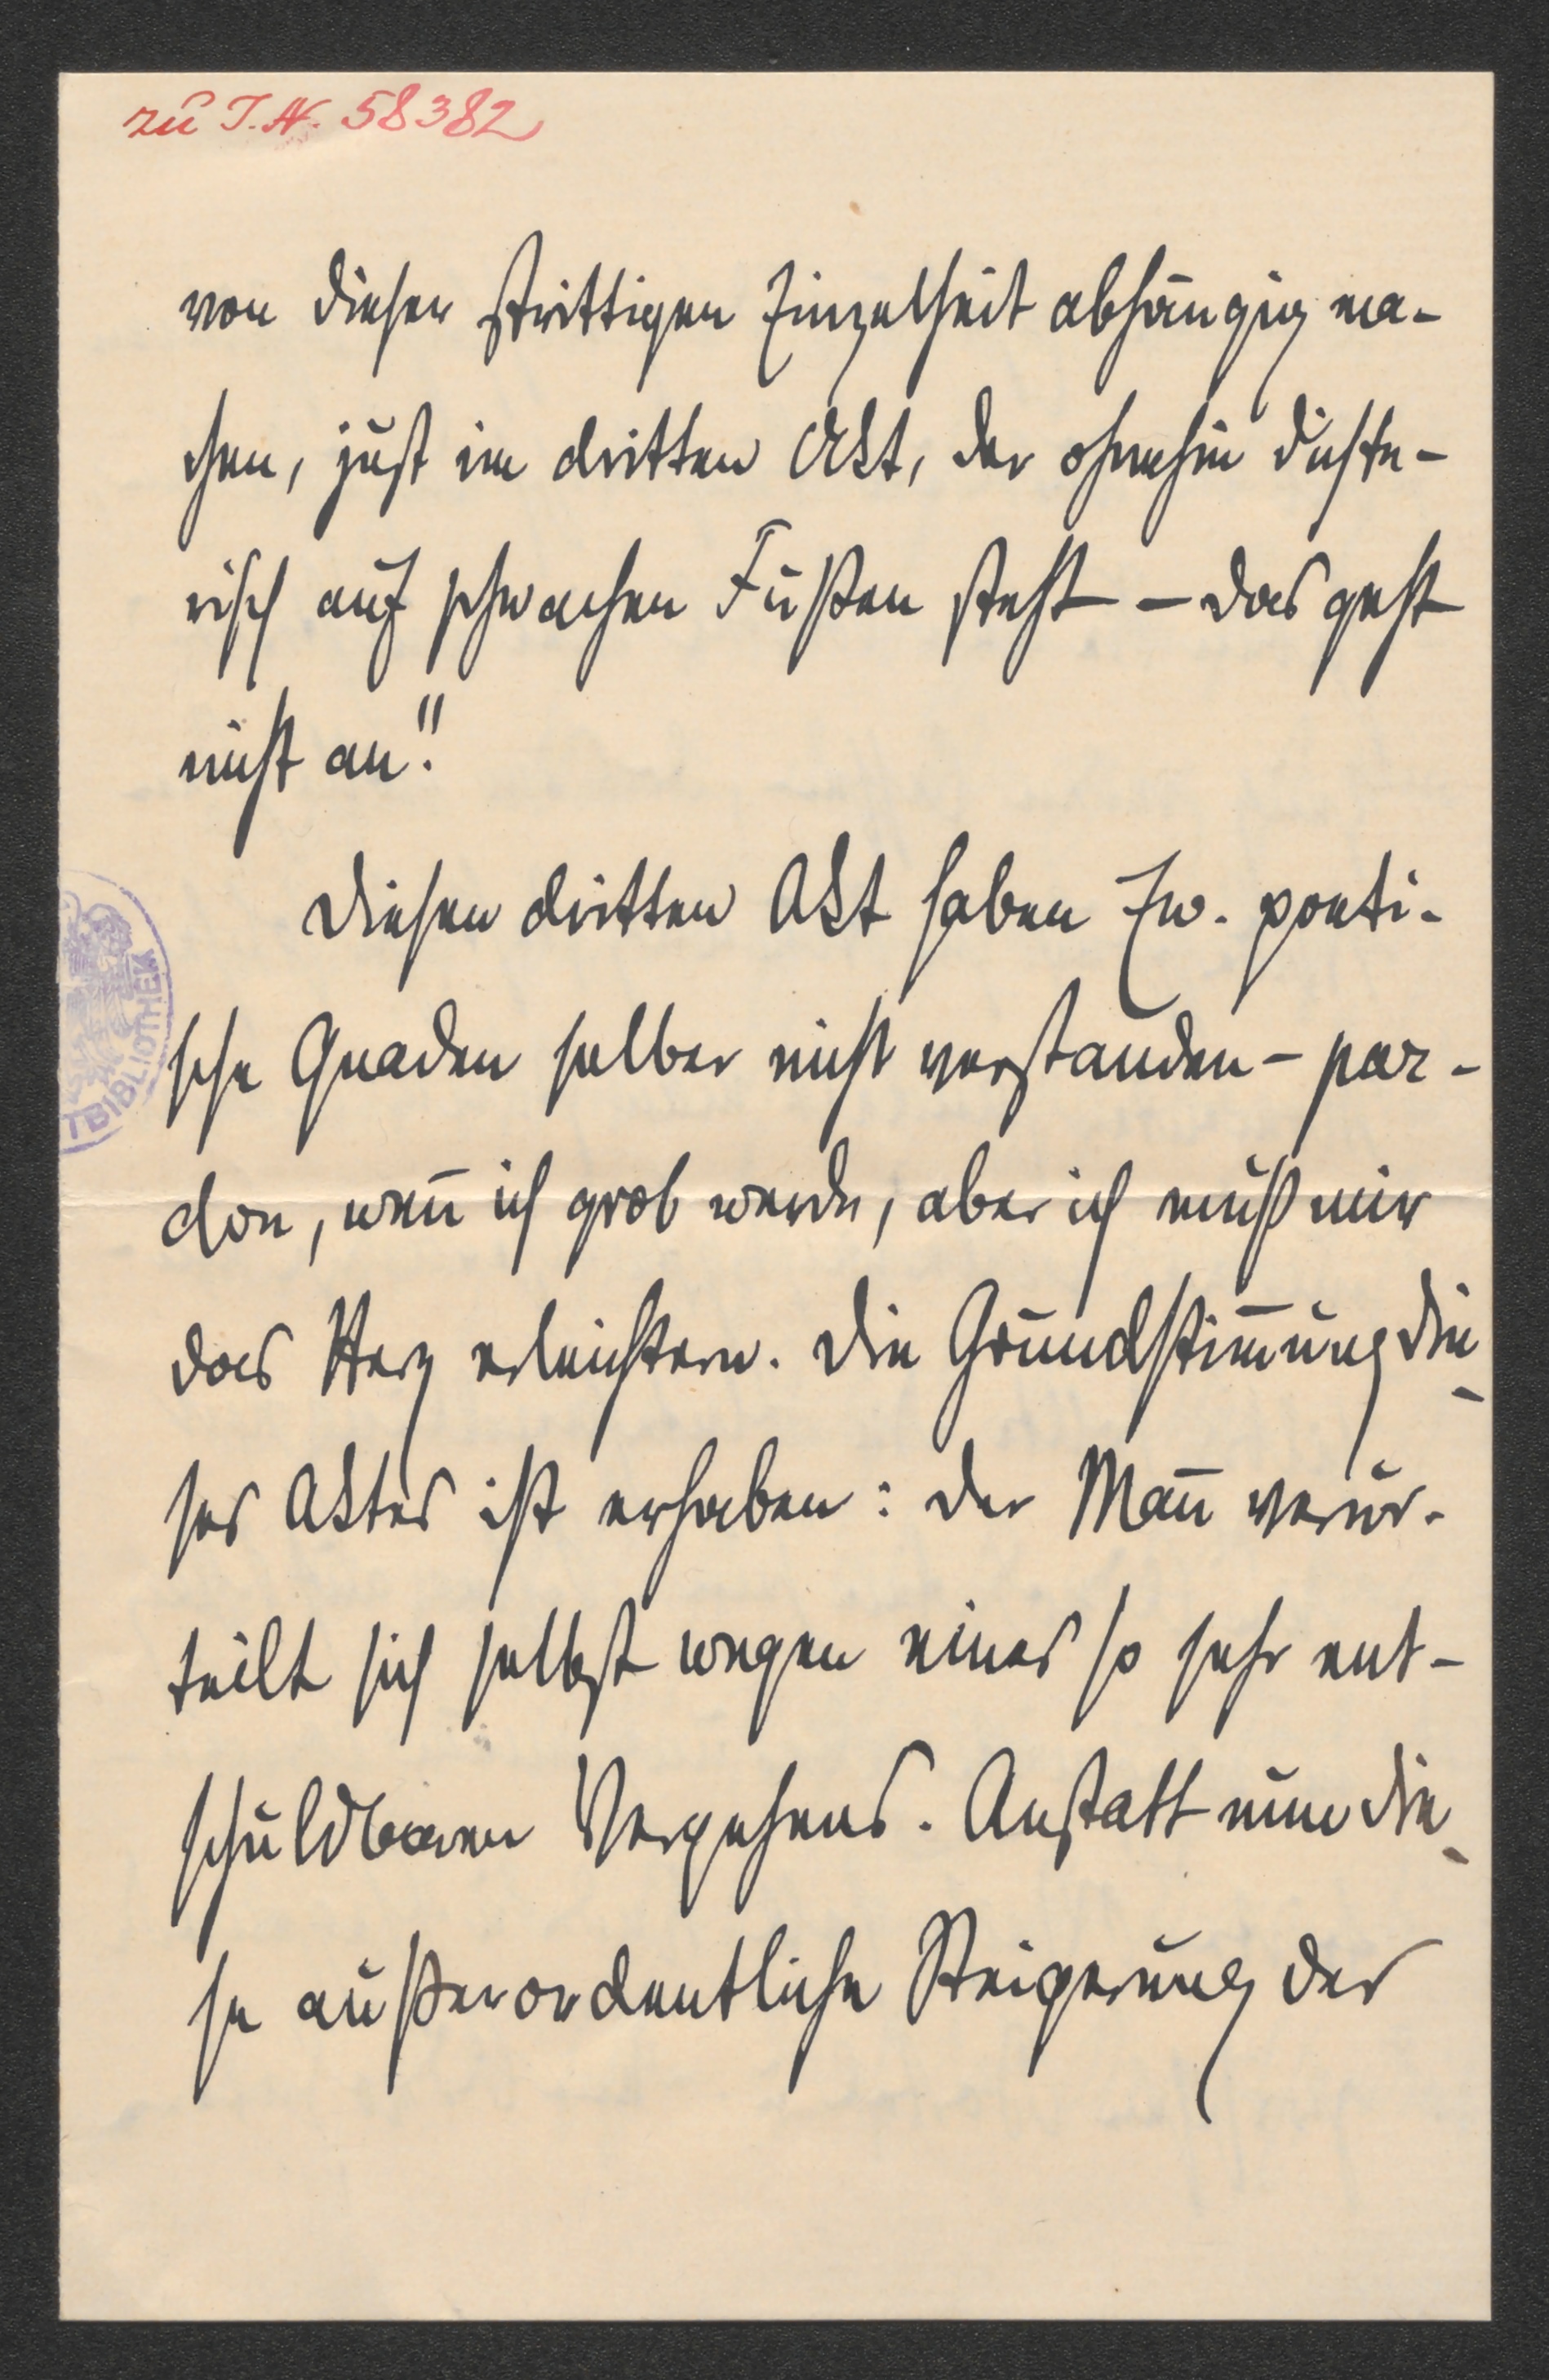 zu I.N. 58382
von dieser strittigen Einzelheit abhängig ma-
chen, just im dritten Akt, der ohnehin dichte-
risch auf schwachen Füßen steht – das geht
nicht an!"
Diesen dritten Akt haben Ew. poeti-
sche Gnaden selber nicht verstanden – par-
don, wen̄ ich grob werde, aber ich muß mir
das Herz erleichtern. Die Grundstim̄ung die-
ses Aktes ist erhaben: der Man̄ verur-
teilt sich selbst wegen eines so sehr ent-
schuldbaren Vergehens. Anstatt nun die-
se außerordentliche Steigerung des
TBIBLIOTHEK